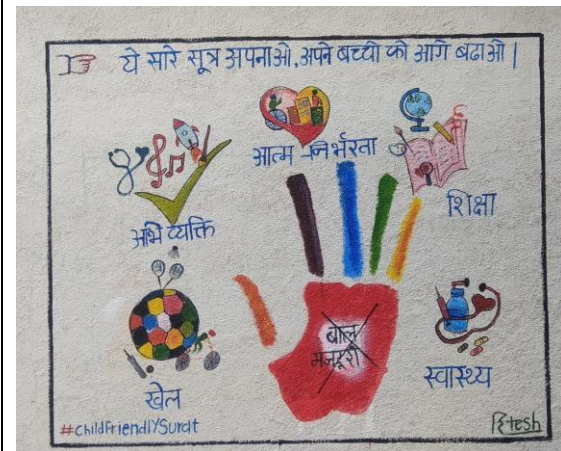 ये सारे सूत्र अपनाओ, अपने बच्चो को आगे बढाओ |
आत्म-निर्भरता
शिक्षा
अभिव्यक्ति
बाल
मजदूरी
स्वास्थ्य
खेल
#childFriendlySurat
Hitesh